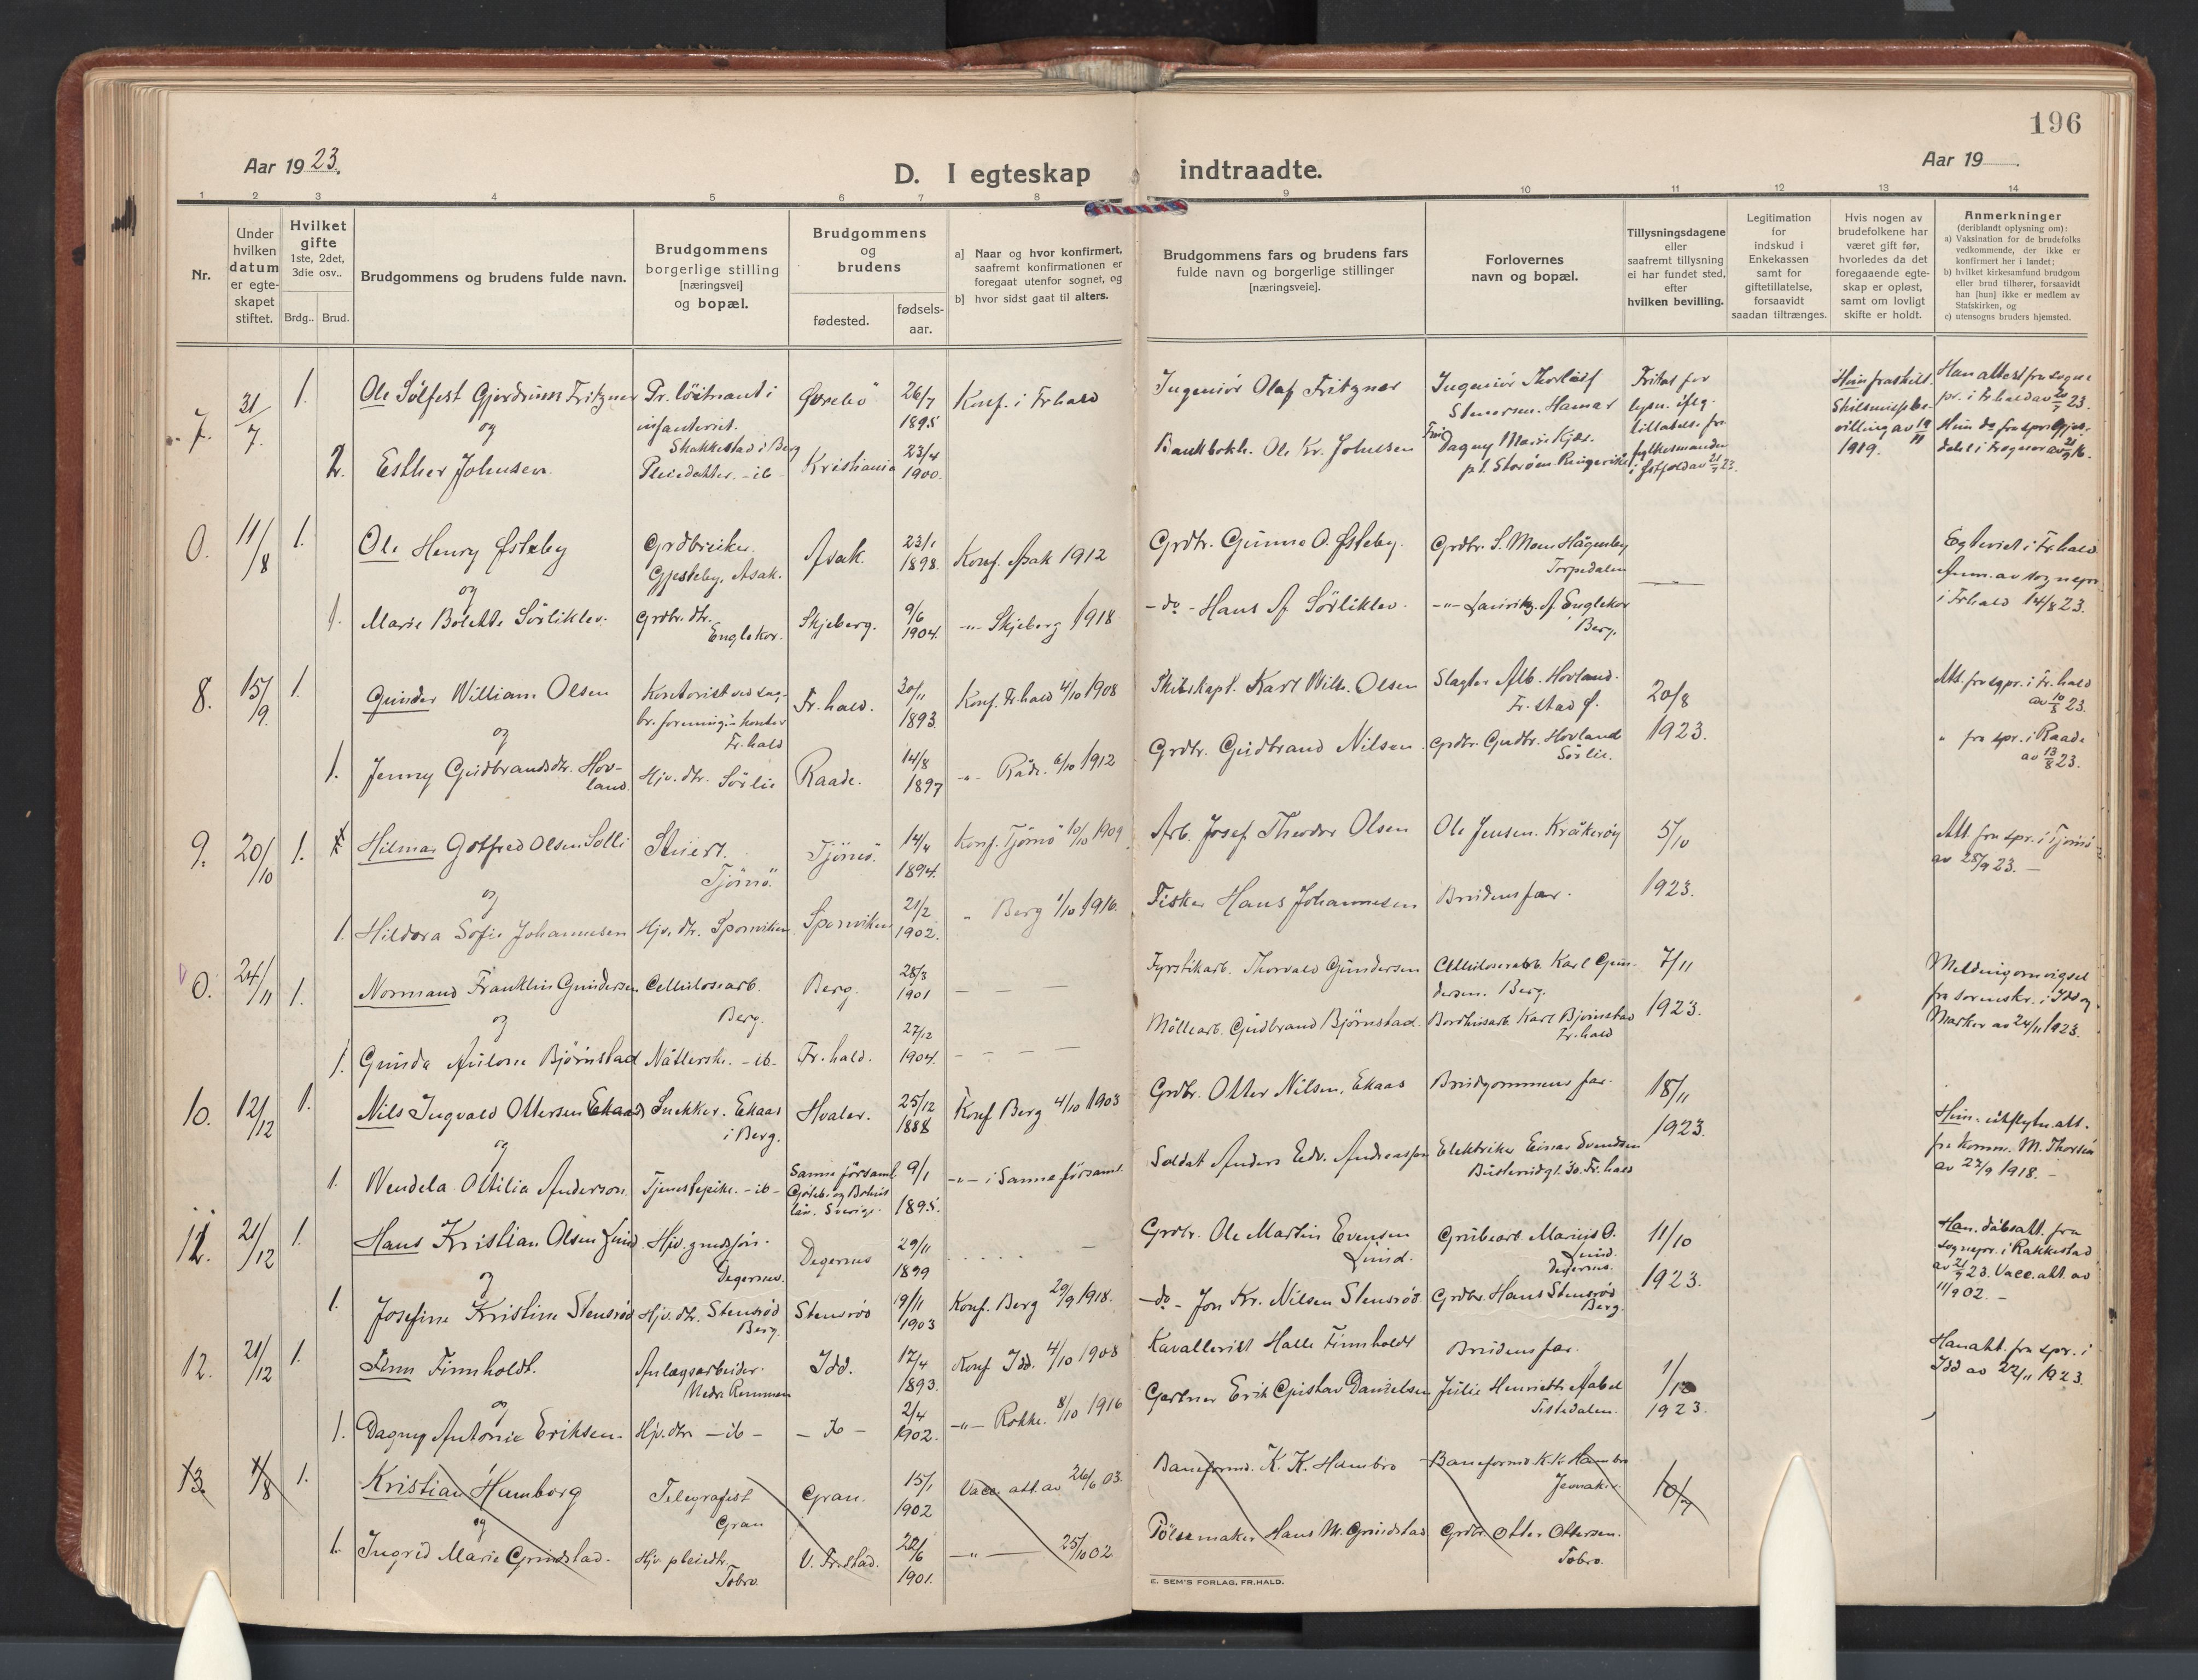 196
Aar 1923.
D. I egteskap indtraadte.
Aar 19
1 2 3 4 5 6 7 8 9 10 11 12 13 14
Nr.
Under hvilken datum er egte-skapet stiftet.
Hvilket gifte 1ste, 2det, 3die osv..
Brdg.. Brud.
Brudgommens og brudens fulde navn.
Brudgommens borgerlige stilling [næringsvei] og bopæl.
Brudgommens og brudens
fødested.
fødsels-aar.
a] Naar og hvor konfirmert, saafremt konfirmationen er foregaat utenfor sognet, og
b] hvor sidst gaat til alters.
Brudgommens fars og brudens fars fulde navn og borgerlige stillinger [næringsveie].
Forlovernes navn og bopæl.
Tillysningsdagene eller saafremt tillysning ei har fundet sted, efter hvilken bevilling.
Legitimation for indskud i Enkekassen samt for giftetillatelse, forsaavidt saadan tiltrænges.
Hvis nogen av brudefolkene har været gift før, hvorledes da det foregaaende egte-skap er opløst, samt om lovligt skifte er holdt.
Anmerkninger (deriblandt oplysning om):
a) Vaksination for de brudefolks vedkommende, der ikke er konfirmert her i landet;
b) hvilket kirkesamfund brudgom eller brud tilhører, forsaavidt han [hun] ikke er medlem av Statskirken, og
c) utensogns bruders hjemsted.
7. 31/7. 1. Ole Sölfest Gjördrum Fritzner Pr. löitnant i infanteriet. Skakkestad i Berg 26/7 1895 Konf. i Frhald Ingeniör Olaf Fritzner Ingeniör Thorleif Stenersen. Hamar
og
2. Esther Johnsen Pleiedatter. - ib - Kristiania 23/4 1900. Bankbokh. Ole Kr. Johnsen Dagny Marie Kjær.
Hun fraskilt. 1919.
0. 11/8 1. Ole Henry Østeby Grdbruker. Gjesteby, Asak. Asak. 23/1 1898. Konf. Asak 1912 Grdbr. Gunne O. Østeby. Grdbr. S. Moen Hågenby Torpedalen
Egteviet i Fr.hald Anm. av sognepr. i Frhald 14/8 23.
og
1. Marie Bolette Sörliklev. Grdbr. dtr. Englekor. Skjeberg. 9/6 1904. -"- Skjeberg 1918 -do- Hans A. Sörliklev. -"- Lauritz A. Englekor Berg.
8. 15/9. 1. Gunder William Olsen Kontorist Fr.hald Fr.hald. 20/11 1893. Konf. Fr.hald 4/10 1908 Skibskapt. Karl Wilh. Olsen Slagter Alb. Hovland. Fr.stad Ø. 20/8 1923.
Att. fra sgpr. i Fr.hald av 10/8 23.
og
1. Jenny Gudbrandsdtr. Hovland. Hjv. dtr. Sörlie Raade. 14/8 1897 -"- Råde. 6/10 1912 Grdbr. Gudbrand Nilsen. Grdbr. Gudbr. Hovland Sörlie.
" fra spr. i Raade av 13/8 23.
9. 20/10 1. Hilmar Gotfred Olsen Solli Stuert. Tjömö. Tjömö. 14/4 1894. Konf. Tjömö 10/10 1909. Arb. Josef Theodor Olsen Ole Jensen. Kråkeröy 5/10 1923.
Att. fra spr. i Tjömö av 28/9 23. -
og
1. Hildora Sofie Johannesen Hjv. dtr. Sponviken Sponviken 21/2 1902. " Berg 1/10 1916. Fisker Hans Johannesen Brudens far.
0. 24/11 1. Normand Franklin Gundersen Cellulosearb. Berg. Berg. 28/3 1901 — — — Fyrstikarb. Thorvald Gundersen Cellulosearb. Karl Gundersen. Berg. 7/11 1923.
Melding om vigsel fra sorenskr. i Idd og Marker av 24/11 1923.
og
1. Gunda Aulone Björnstad Nåtlerske. - ib - Fr.hald. 27/12 1904. — — — Möllearb. Gudbrand Björnstad. Bordhusarb. Karl Björnstad Fr.hald
10. 12/12 1. Nils Ingvald Ottersen Ekaas Snekker. Ekaas i Berg. Hvaler. 25/12 1888 Konf Berg 4/10 1903 Grdbr. Otter Nilsen, Ekaas Brudgommens far. 18/11 1923.
Hun. utflytn. att. fra komm. M. Thorsén av 27/9 1918. -
og
1. Wendela Ottilia Anderson Tjenestepike. - ib - Sanne församl. Göteb. og Bohus län. Sverige. 9/1 1895. -"- i Sanne församl. Soldat Anders Edv. Andreasson Elektriker Einar Svendsen Busterudgt. 30. Fr.hald
11. 21/12 1. Hans Kristian Olsen Lund Hjv. grdsøn. Degernes. Degernes 29/11 1899 Grdbr. Ole Martin Evensen Lund. Grubearb. Marius O. Lund. Degernes. 11/10 1923.
Han. dåbsatt. fra sognepr. i Rakkestad av 21/9 23. Vacc. att. av 11/9 02. -
og
1. Josefine Kristine Stensröd Hjv. dtr. Stensröd Berg. Stensröd 19/11 1903 Konf. Berg 29/9 1918. -do- Jon Kr. Nilsen Stensröd. Grdbr. Hans Stensröd Berg.
12. 21/12 1. Finn Finnholdt. Anlægsarbeider. Nedre Remmen Idd. 17/4 1893. Konf Idd. 4/10 1908 Kavallerist Halle Finnholdt Brudens far. 1/12 1923.
Han att. fra spr. i Idd av 22/11 1923.
og
1. Dagny Antonie Eriksen. Hjv. dtr - ib - - do - 2/4 1902. -"- Rokke. 8/10 1916 Gartner Erik Gustav Danielsen Julie Henriette Aabel Tistedalen.
13. 4/8 1. Kristian Humborg Telegrafist Gran Gran. 15/1 1902 Vacc. att. av 26/6 03. Baneformd. K. K. Humbro Baneformd K. K. Hambro Jevnaker. 10/7
og
1. Ingrid Marie Grindstad. Hjv. pleiedtr. Tobro. V. Fr.stad. 22/6 1901. -"- 25/10 02. Pölsemaker Hans M. Grindstad Grdbr. Otter Ottersen. Tobro.
E. SEM'S FORLAG, FR.HALD.